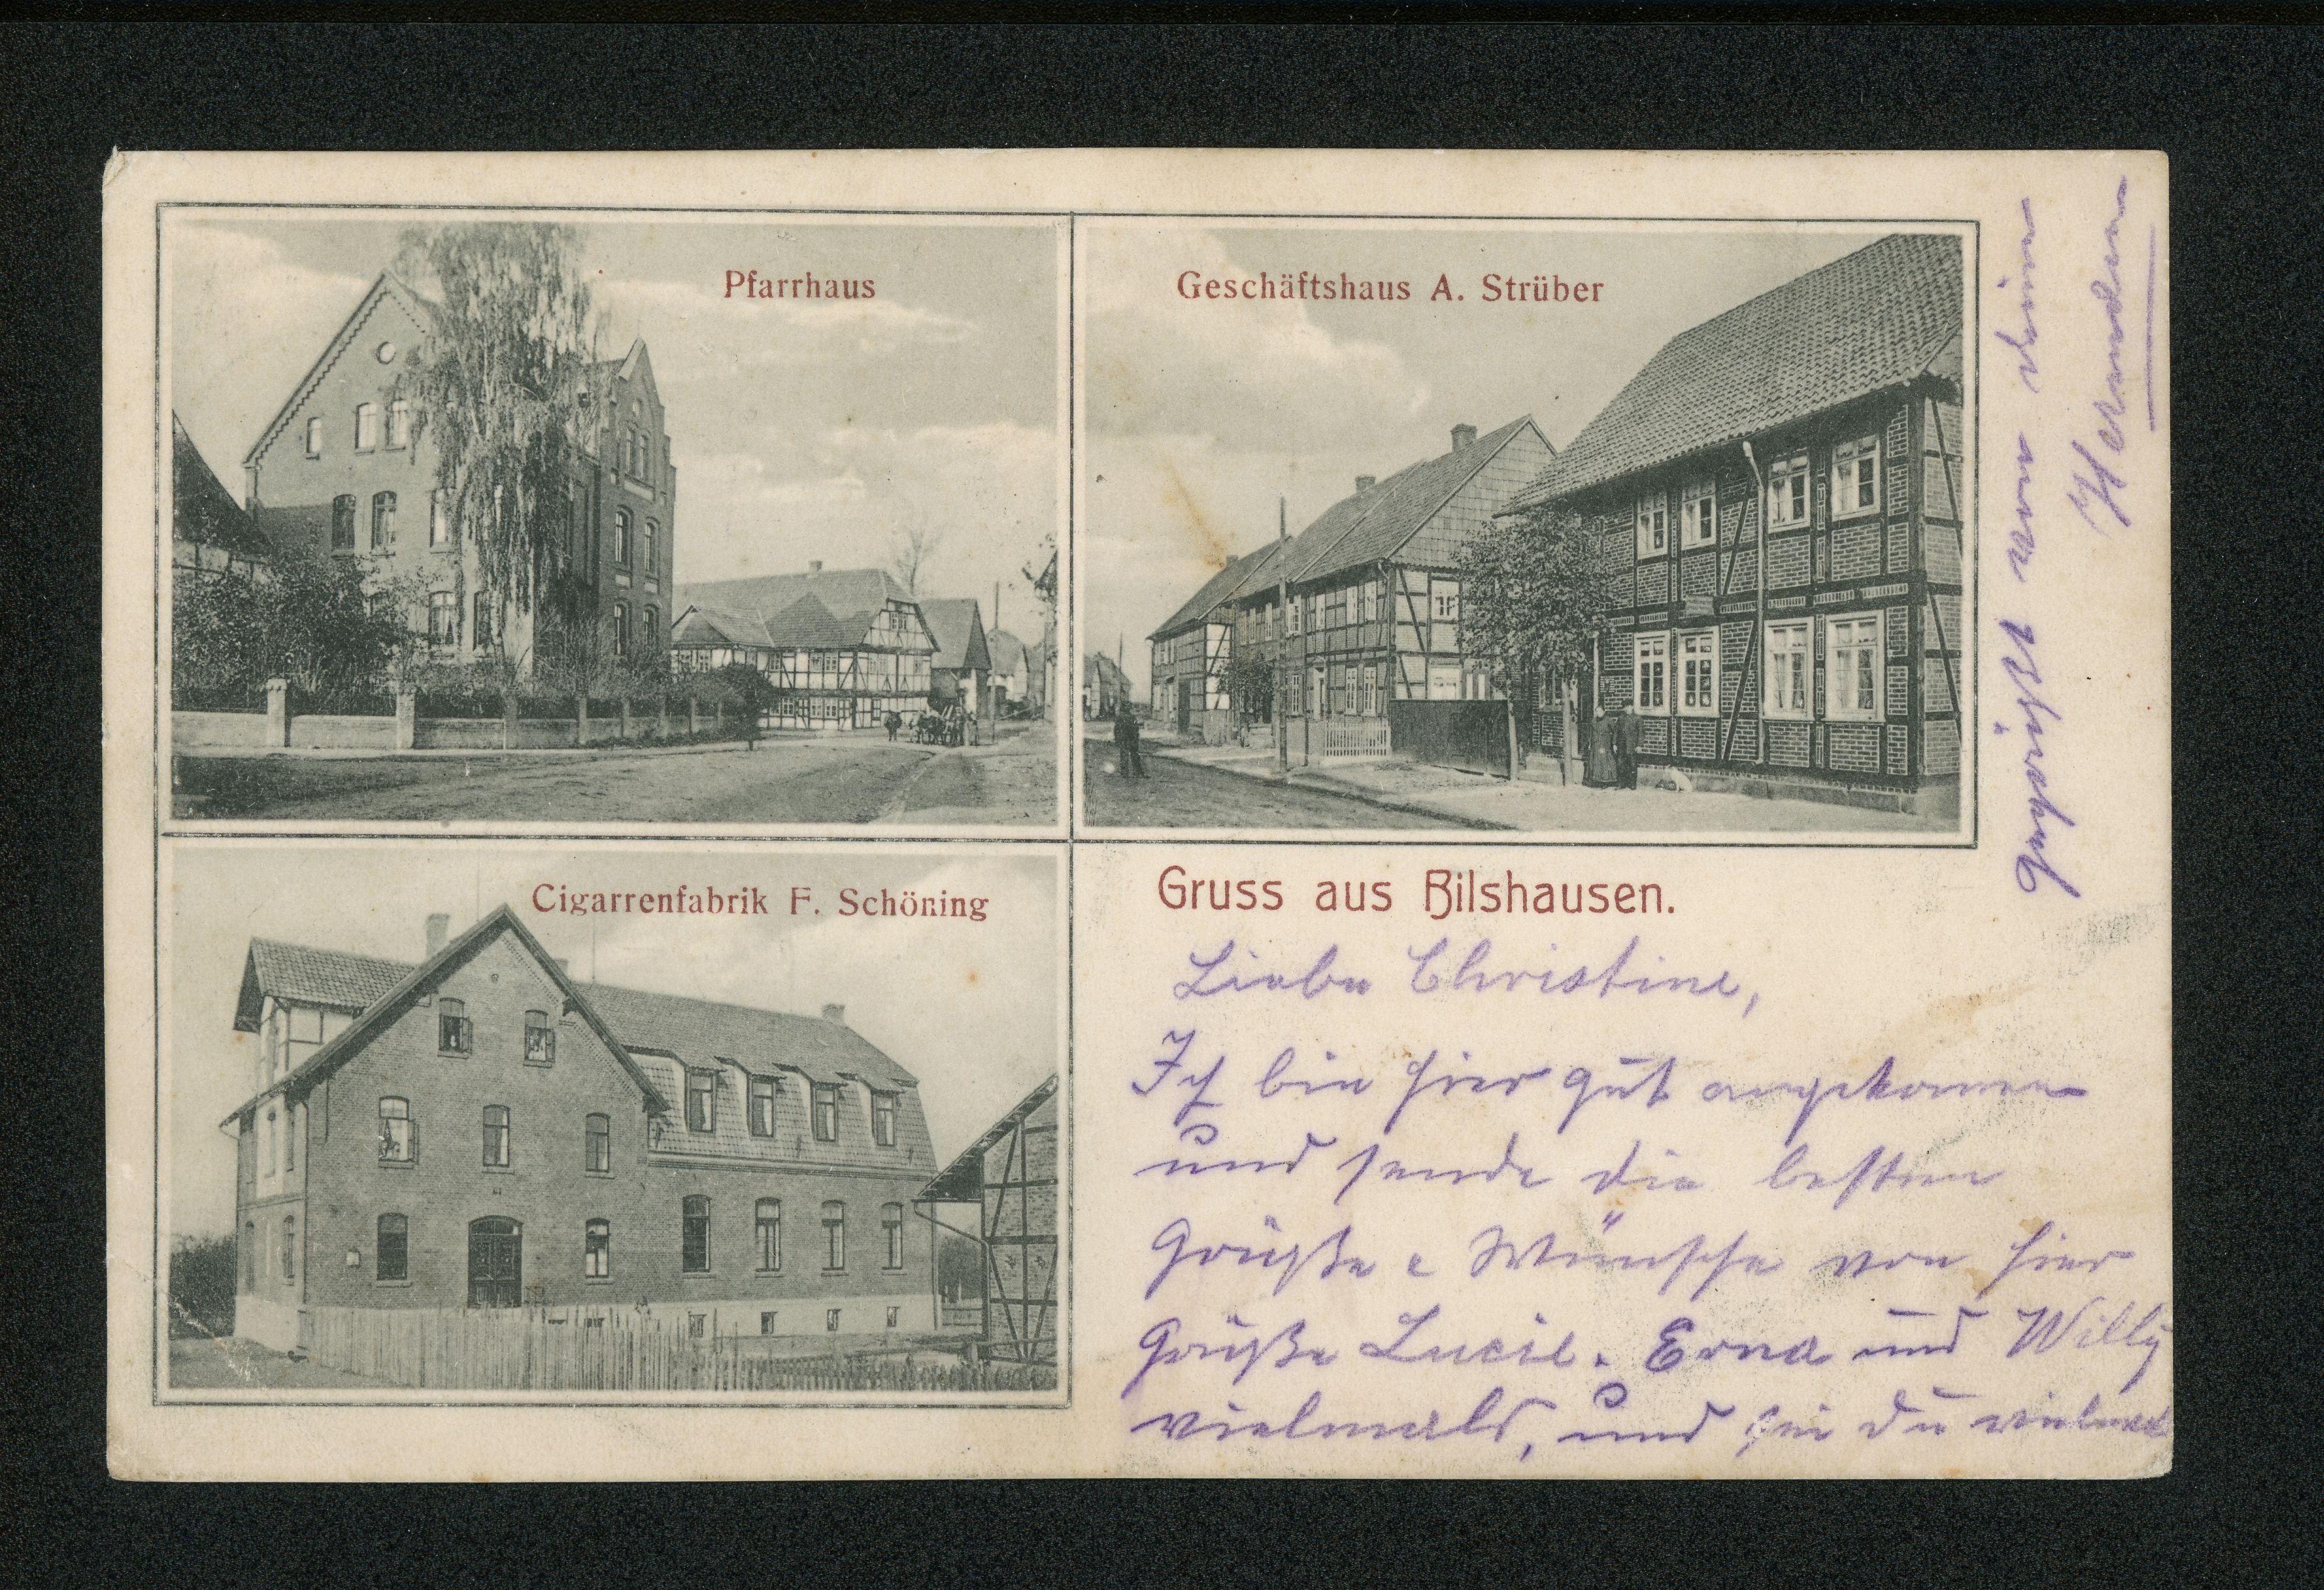 Pfarrhaus
Geschäftshaus A. Strüber
Cigarrenfabrik F. Schöning
Gruss aus Bilshausen.
Liebe Christine,
Ich bin hier gut angekommen
und sende die besten
Grüße u Wünsche von hier
Grüße Lucie. Erna und Willy
vielmals, und sei du vielmal
gegrüßt von deinem
Hermann